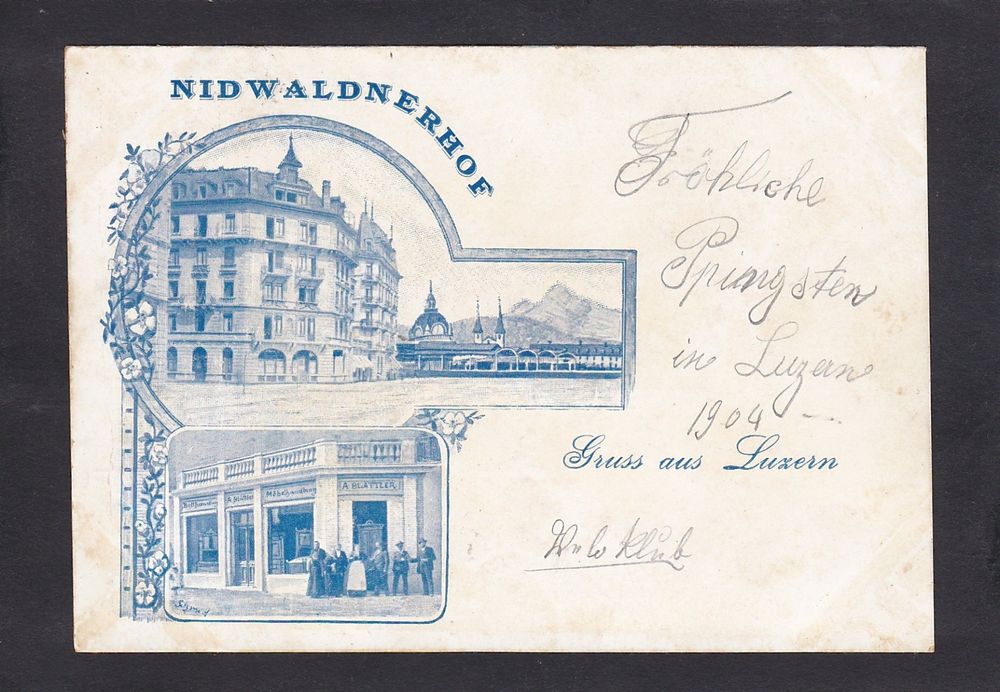 NIDWALDNERHOF
Fröhliche
Pfingsten
in Luzern
1904
Gruss aus Luzern
A. Blättler
Möbelhandlung
A BLÄTTLER
Velo Klub